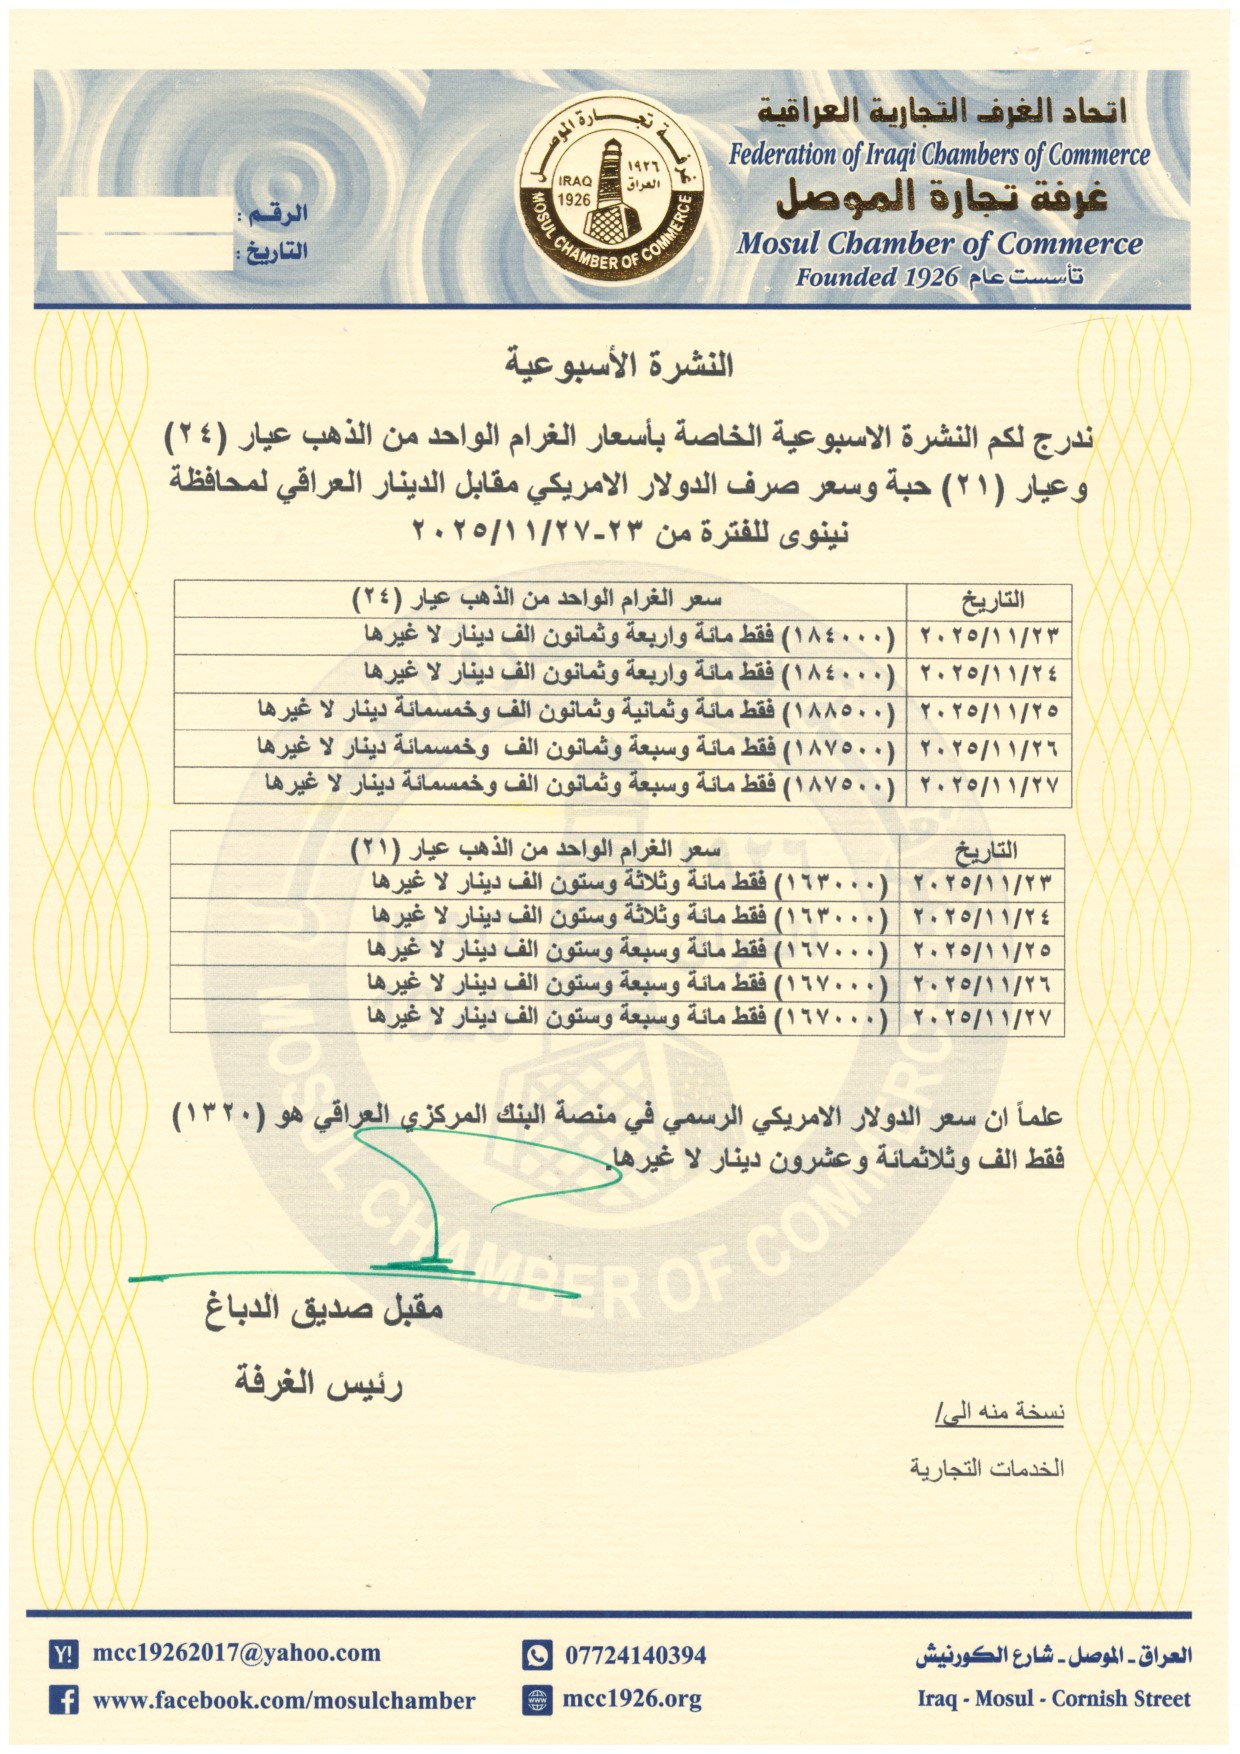 اتحاد الغرف التجارية العراقية
Federation of Iraqi Chambers of Commerce
غرفة تجارة الموصل
Mosul Chamber of Commerce
Founded 1926 تأسست عام
غرفة تجارة الموصل
IRAQ ١٩٢٦
1926 العراق
MOSUL CHAMBER OF COMMERCE
الرقم :
التاريخ :
النشرة الأسبوعية
ندرج لكم النشرة الاسبوعية الخاصة بأسعار الغرام الواحد من الذهب عيار (٢٤)
وعيار (٢١) حبة وسعر صرف الدولار الامريكي مقابل الدينار العراقي لمحافظة
نينوى للفترة من ٢٣-٢٠٢٥/١١/٢٧
التاريخ سعر الغرام الواحد من الذهب عيار (٢٤)
٢٠٢٥/١١/٢٣ (١٨٤٠٠٠) فقط مائة واربعة وثمانون الف دينار لا غيرها
٢٠٢٥/١١/٢٤ (١٨٤٠٠٠) فقط مائة واربعة وثمانون الف دينار لا غيرها
٢٠٢٥/١١/٢٥ (١٨٨٥٠٠) فقط مائة وثمانية وثمانون الف وخمسمائة دينار لا غيرها
٢٠٢٥/١١/٢٦ (١٨٧٥٠٠) فقط مائة وسبعة وثمانون الف وخمسمائة دينار لا غيرها
٢٠٢٥/١١/٢٧ (١٨٧٥٠٠) فقط مائة وسبعة وثمانون الف وخمسمائة دينار لا غيرها
التاريخ سعر الغرام الواحد من الذهب عيار (٢١)
٢٠٢٥/١١/٢٣ (١٦٣٠٠٠) فقط مائة وثلاثة وستون الف دينار لا غيرها
٢٠٢٥/١١/٢٤ (١٦٣٠٠٠) فقط مائة وثلاثة وستون الف دينار لا غيرها
٢٠٢٥/١١/٢٥ (١٦٧٠٠٠) فقط مائة وسبعة وستون الف دينار لا غيرها
٢٠٢٥/١١/٢٦ (١٦٧٠٠٠) فقط مائة وسبعة وستون الف دينار لا غيرها
٢٠٢٥/١١/٢٧ (١٦٧٠٠٠) فقط مائة وسبعة وستون الف دينار لا غيرها
علماً ان سعر الدولار الامريكي الرسمي في منصة البنك المركزي العراقي هو (١٣٢٠)
فقط الف وثلاثمائة وعشرون دينار لا غيرها.
مقبل صديق الدباغ
رئيس الغرفة
نسخة منه الى/
الخدمات التجارية
MOSUL CHAMBER OF COMMERCE
العراق - الموصل - شارع الكورنيش
Iraq - Mosul - Cornish Street
07724140394
mcc1926.org
mcc19262017@yahoo.com
www.facebook.com/mosulchamber